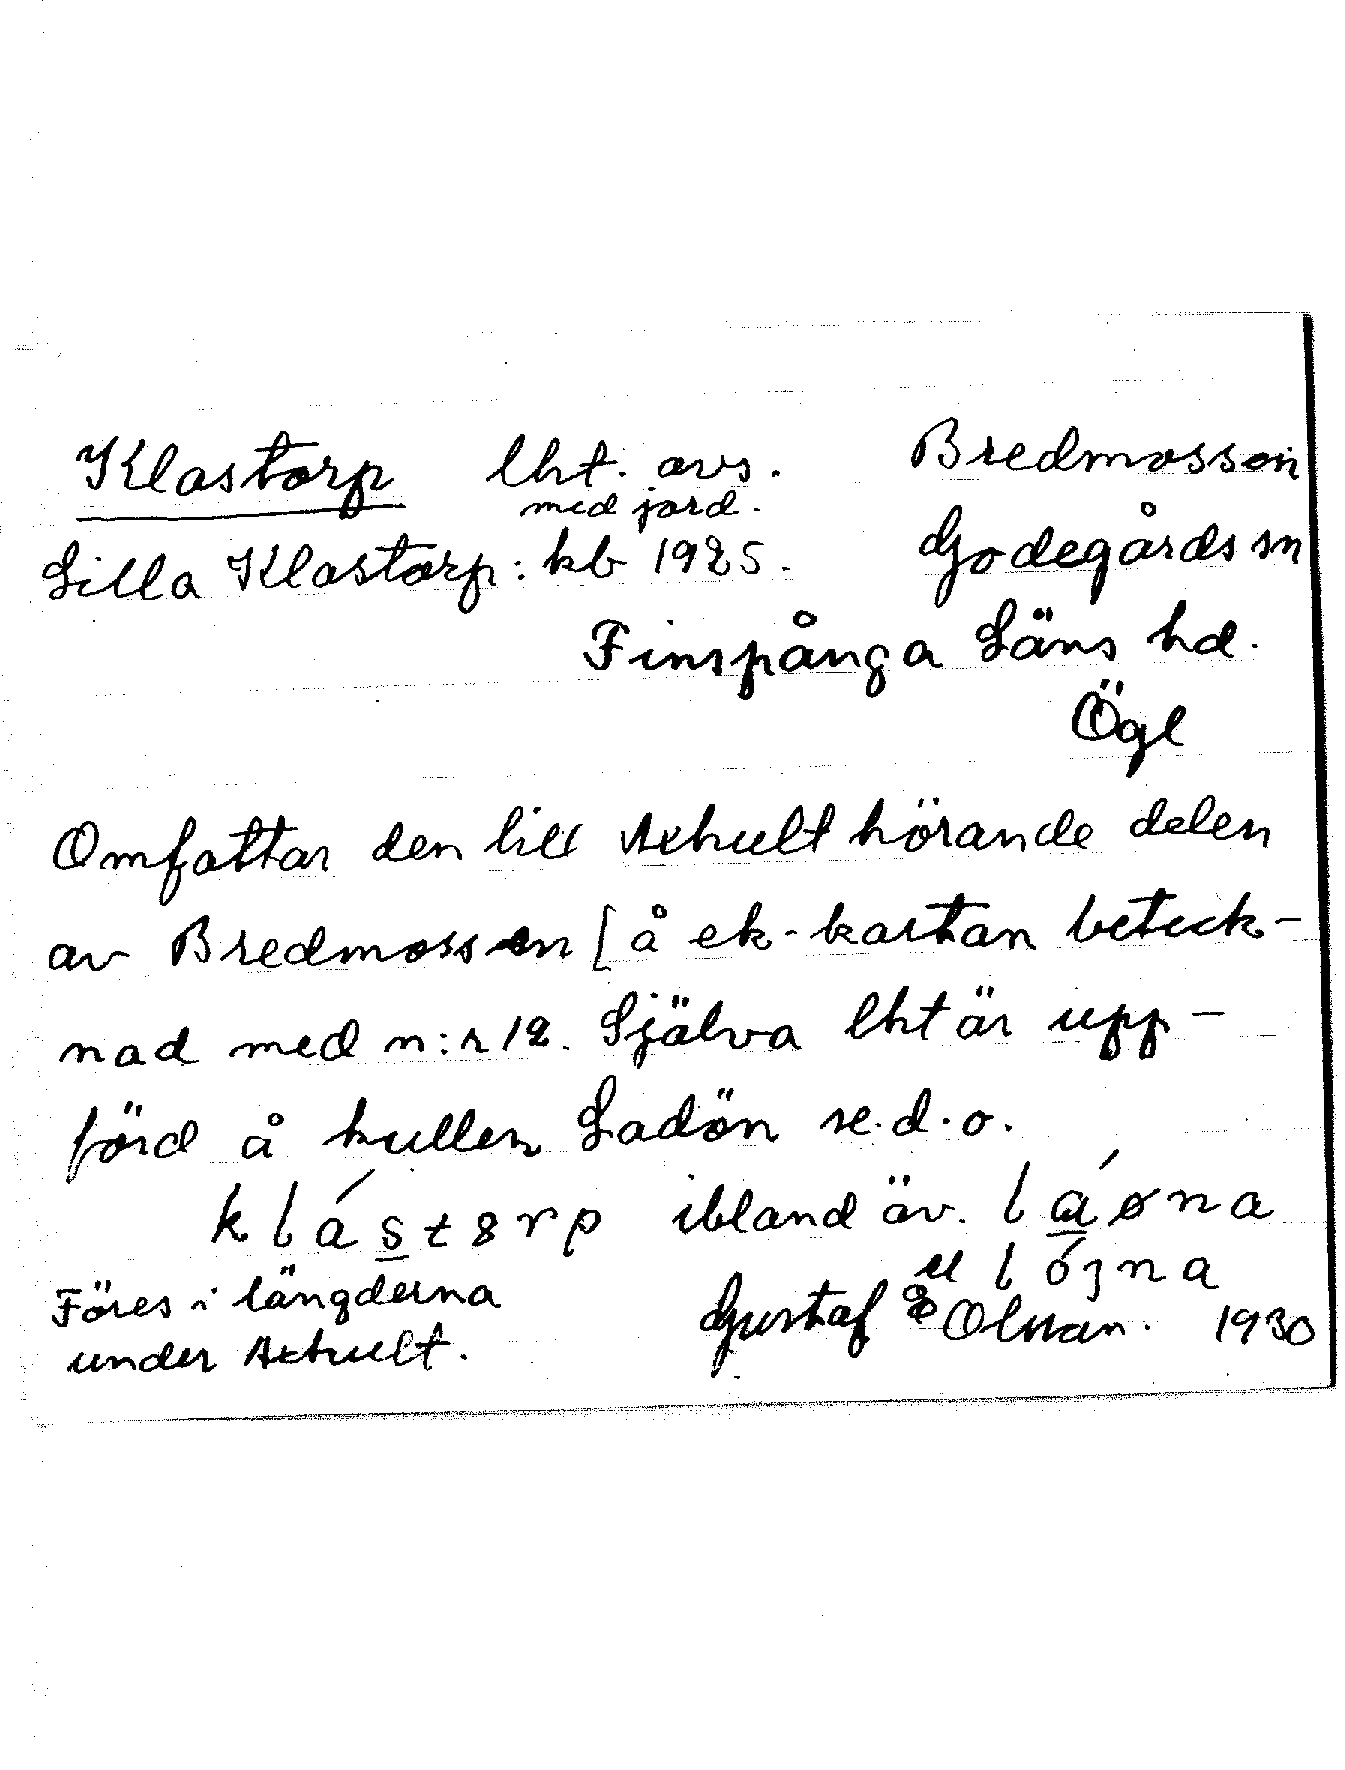 Klastorp lht. avs. Bredmossen
med jord.
Lilla Klastorp: kb 1925. Godegårds sn
Finspånga Läns hd.
Ögl
Omfattar den till Axhult hörande delen
av Bredmossen [ å ek-kartan beteck-
nad med n:r 12. Själva lht är upp-
förd å kullen Ladön se.d.o.
ibland äv.
Föres i längderna
under Axhult. Gustaf Olsson. 1930